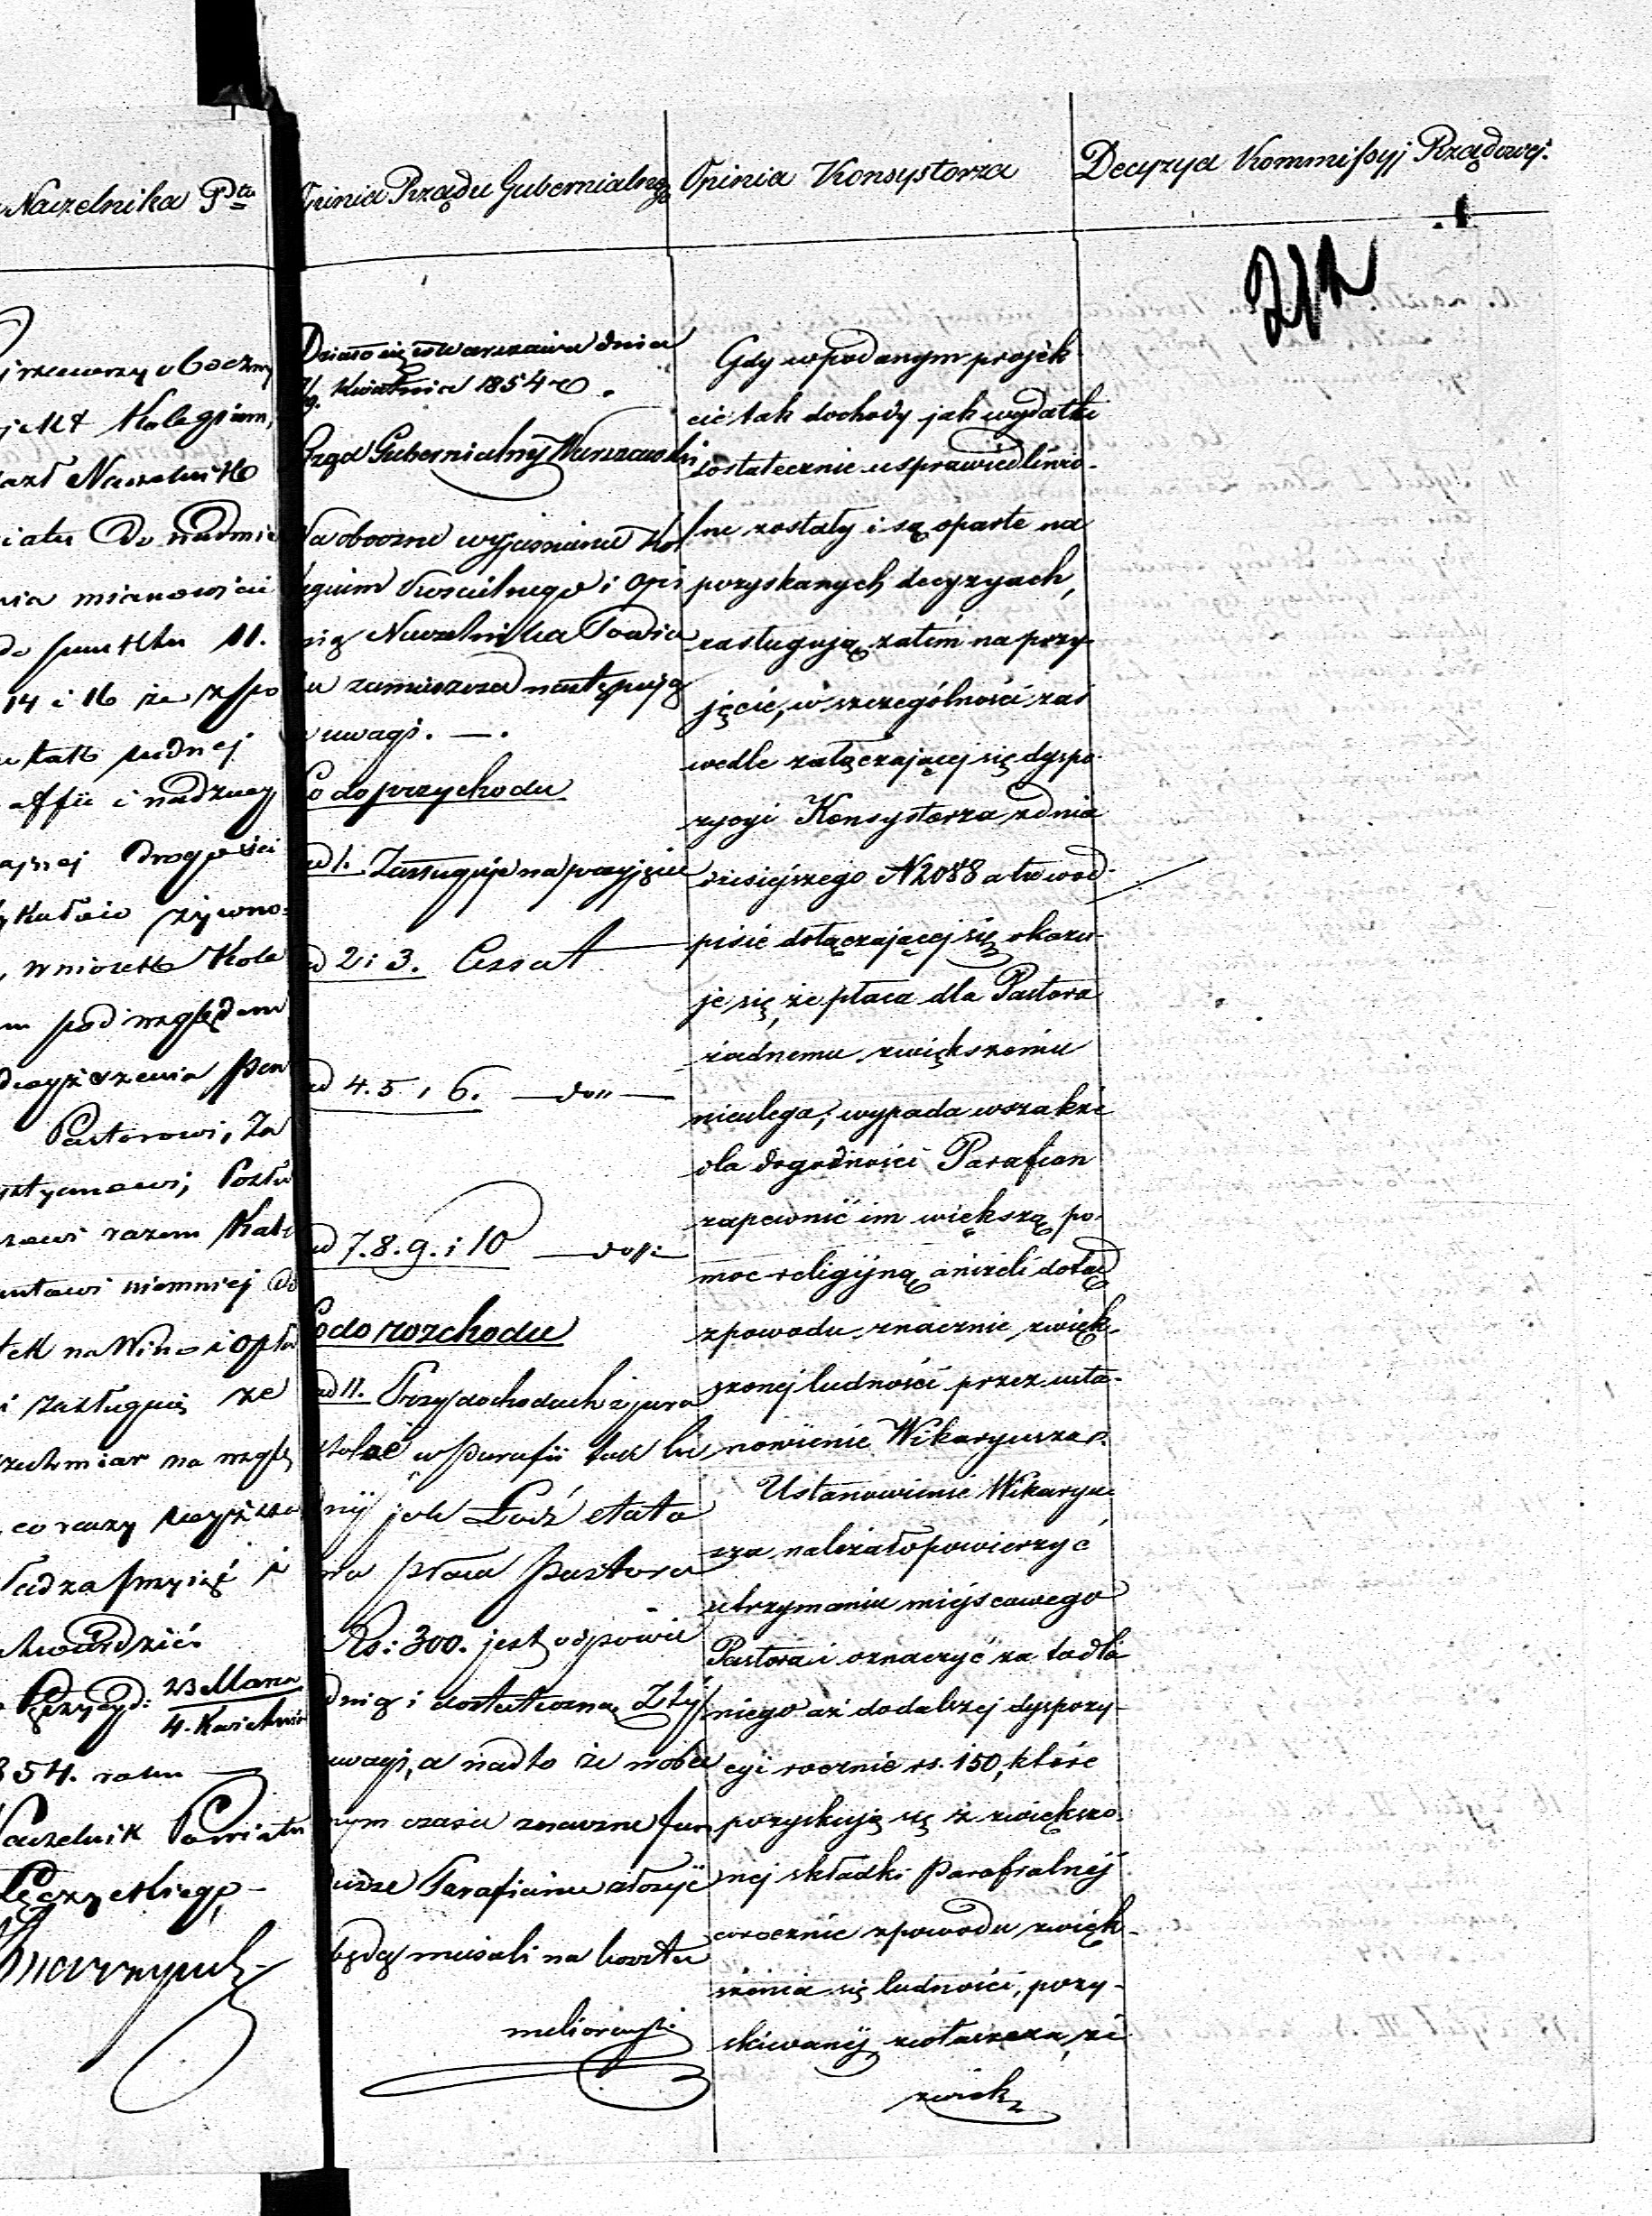 Naczelnika Ptu
Opinia Rządu Gubernialnego
Opinia Konsystorza
Decyzya Kommissyj Rządowej.
Przejrzawszy uboczny
Kolegium,
Naczelnik
do nadmie
nia mianowicie
do punktu 11.
14 i 16 że z po
wodu tak ludnej
affii i nadzwy
ajnej drogości
tykułów żywno-
, wniosek Kole
m pod względem
Pastorowi, Za
krystyanowi,
razem Kale
niemniej do
tek na Wino i opła
i zasługują ze
na wzglę
przyjąć i
twierdzić
Łęczyca d: 23 Marca
4. Kwietnia
854. roku
Naczelnik Powiatu
Łęczyckiego
Działo się w Warszawie dnia
/19. Kwietnia 1854 r.
Rząd Gubernialny Warszawski
Na oboczne wyjaśnienie Kol
legium Kościelnego i opi
nią Naczelnika Powia
tu zamieszcza następują
ce uwagi. —.
Co do przychodu
ad 1. Zasługuje na przyjęcie
ad 2 i 3. Cessat
ad 4. 5 i 6. — do "—
ad 7. 8. 9. i 10 — do "—
Co do rozchodu
ad 11. Przy dochodach z jura
stolae w parafii tak lu
dnéj jak Łódź etato
wa płaca Pastora
Rs: 300. jest odpowie
dnią i dostateczną. Z tej
uwagi, a nadto że w obec
nym czasie znaczne fun
dusze Parafianie złożyć
będą musieli na koszta
melioracyi
Gdy w podanym projek-
cie tak dochody jak wydatki
dostatecznie usprawiedliwio-
ne zostały i są oparte na
pozyskanych decyzyach,
zasługują zatém na przy-
jęcie, w szczególności zaś
wedle załączającej się dyspo-
zycyi Konsystorza z dnia
dzisiejszego N 2088 a tu w od-
pisie dołączającej się okazu-
je się, że płaca dla Pastora
żadnemu zwiększeniu
nieulega; wypada wszakże
dla dogodności Parafian
zapewnić im większą po-
moc religijną aniżeli dotąd
z powodu znacznie zwięk-
szonej ludności przez usta-
nowienie Wikaryusza.
Ustanowienie Wikaryu-
sza należało powierzyć
utrzymaniu miejscowego
Pastora i oznaczyć za to dla
niego aż do dalszej dyspozy-
cyi rocznie rs. 150, które
pozyskują się z zwiększo-
nej składki Parafialnéj
corocznie z powodu zwięk-
szenia się ludności, pozy-
skiwanéj zwłaszcza, że
zwięk